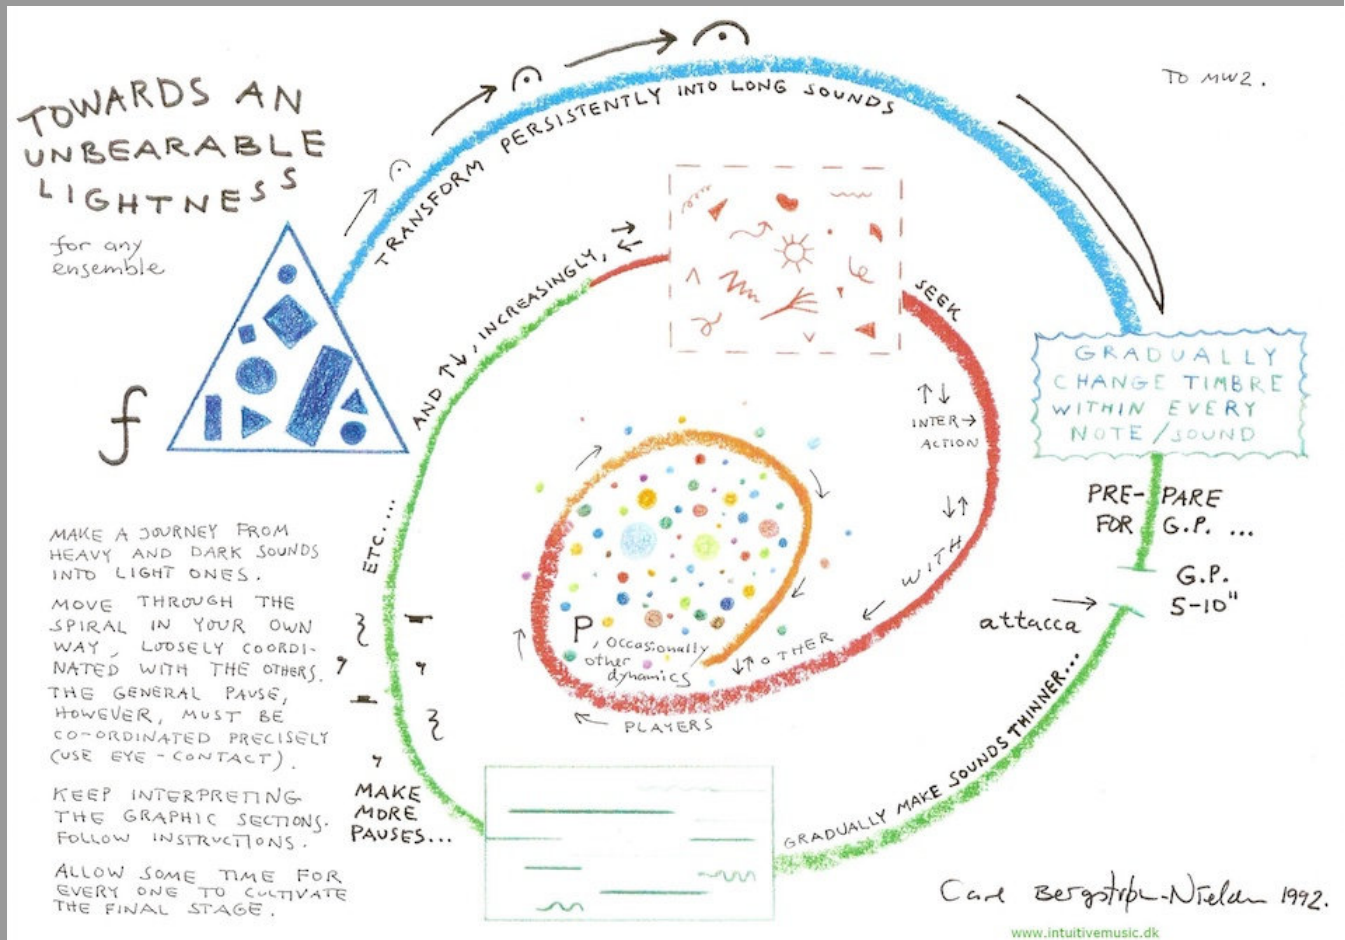 TOWARDS AN
UNBEARABLE
LIGHTNESS
for any
ensemble
TO MW2.
f
TRANSFORM PERSISTENTLY INTO LONG SOUNDS
GRADUALLY
CHANGE TIMBRE
WITHIN EVERY
NOTE/SOUND
PRE- PARE
FOR G.P. ...
G.P.
5-10"
attacca
GRADUALLY MAKE SOUNDS THINNER...
MAKE
MORE
PAUSES...
ETC....
AND ↑↓, INCREASINGLY,
SEEK
INTER→
ACTION
WITH
OTHER
PLAYERS
P, occasionally
other
dynamics
MAKE A JOURNEY FROM
HEAVY AND DARK SOUNDS
INTO LIGHT ONES.
MOVE THROUGH THE
SPIRAL IN YOUR OWN
WAY, LOOSELY COORDI-
NATED WITH THE OTHERS.
THE GENERAL PAUSE,
HOWEVER, MUST BE
CO-ORDINATED PRECISELY
(USE EYE-CONTACT).
KEEP INTERPRETING
THE GRAPHIC SECTIONS.
FOLLOW INSTRUCTIONS.
ALLOW SOME TIME FOR
EVERY ONE TO CULTIVATE
THE FINAL STAGE.
Carl Bergstrøm-Nielsen 1992.
www.intuitivemusic.dk